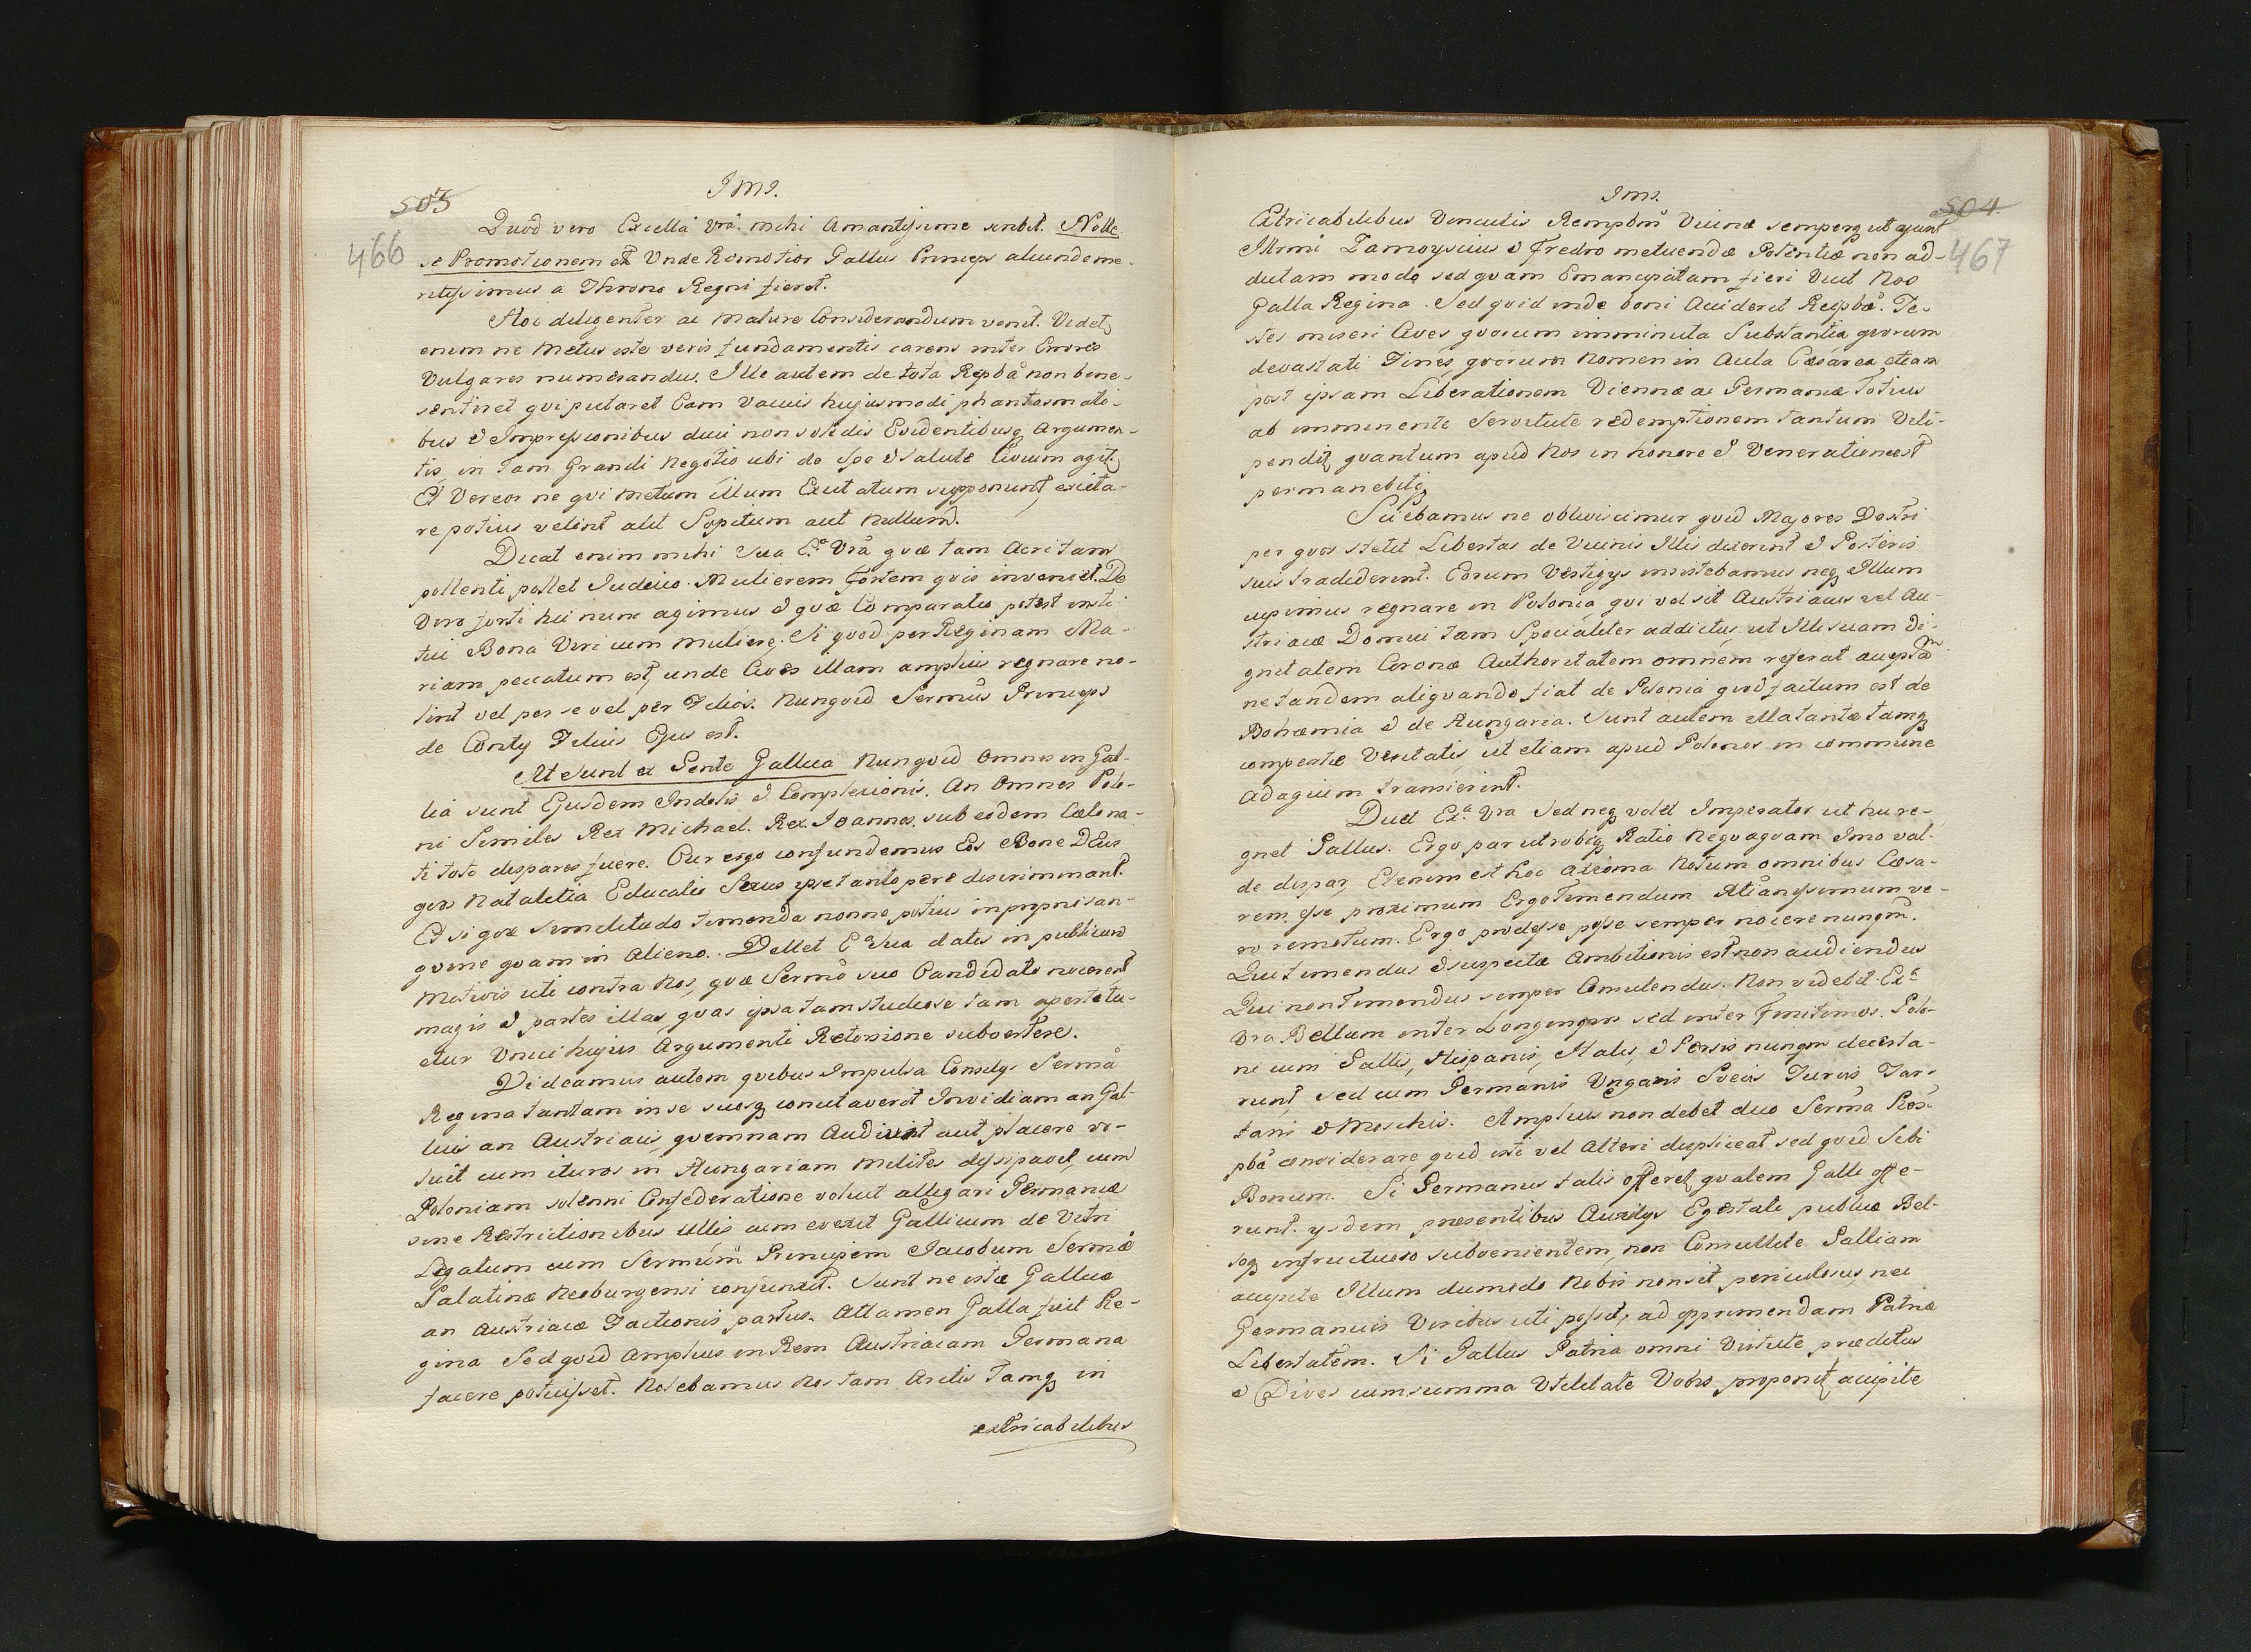 503
466
Jms.
Quod vero Excella Vra. mihi Amantissime scribit. Nolle
se Promotionem et Unde Remotior Gallus Princeps aliunde me-
ritissimus a Throno Regni fieret.
Hoc diligenter ac mature Considerandum venit. Videt
enim ne Metus iste veris fundamentis carens inter Errores
Vulgares numerandus. Ille autem de tota Repba non bene
sentiret qvi putaret Eam vacuis hujusmodi phantasmati-
bus & Impressionibus duci non solidis Evidentibusq Argumen-
tis, in tam Grandi Negotio ubi de Spe & Salute Civium agit
Et Vereor ne qvi metum illum Excitatum supponunt, excita-
re potius velint alit Sopitum aut nullum.
Dicat enim mihi Sua E.a Vra qvæ tam Acri tam
pollenti pollet Judicio. Mulierem fortem qvis inveniet. De
Viro forti hic nunc agimus & qvæ Comparatio potest insti-
tui Bona Viri cum Muliere. Si qvod per Reginam Ma-
riam peccatum est, unde Cives illam amplius regnare no-
lint vel per se vel per Filios. Nunqvid Sermus Princeps
de Conty Filius Ejus est.
At sunt ex Gente Gallica Nunqvid Omnes in Gal-
lia sunt Ejusdem Indolis & Complexionis. An Omnes Polo-
ni Similes Rex Michael. Rex Joannes. sub eodem Cælo na-
ti toto dispares fuere. Cur ergo confundemus Eos Bone DEus
qvos Natalitia Educatio Sexus ipse tantopere discriminant.
Et si qvæ similitudo timenda nonne potius in proprio san-
gvine qvam in Alieno. Vellet E.a Sua datis in publicum
Motivis uti contra Nos, qvæ Sermo suo Candidato nocerent
magis & partes illas, qvas ipsa tam studiose tam aperte tu-
etur Unici hujus Argumenti Retorsione subvertere.
Videamus autem qvibus Impulsa Consilys Serma
Regina tantam in se suosq concitaverit Invidiam an Gal-
licis an Austriacis, qvemnam Audivit aut placere vo-
luit cum ituros in Hungariam Milites dissipavit, cum
Poloniam solenni Confederatione voluit alligari Germaniæ
sine Restrictionibus ullis cum evexit Gallicum de Vitri
Legatum cum Sermum Principem Jacobum Sermæ
Palatinæ Neoburgensi conjunxit. Sunt ne istæ Gallicæ
an Austriacæ Factionis partus. Attamen Galla fuit Re-
gina Sed qvid Amplius in Rem Austriacam Germana
facere potuisset. Nolebamus nos tam Arctis Tamq in
extricabilibus
Jms.
504
467
Extricabilibus Vinculis Rempbm Vicinæ semperq ut ajunt
Illrmi Zamoyscius & Fredro metuendæ Potentiæ non ad-
dictam modo sed qvam Emancipatam fieri Vicit Nos
Galla Regina. Sed qvid inde boni Acciderit Reipbæ. Te-
stes miseri Cives qvorum imminuta Substantia qvorum
devastati Fines, qvorum Nomen in Aula Cæsarea etiam
post ipsam Liberationem Viennæ ac Germaniæ Totius
ab imminente Servitute redemptionem tantum Vili-
pendit, qvantum apud Nos in honore & Veneratione est
permanebitq.
Sciebamus ne oblivisimur qvid Majores Nostri
per qvos stetit Libertas de Vicinis Illis dixerint & Posteris
suis tradiderint. Eorum Vestigys insistebamus neq Illum
cupimus regnare in Polonia, qvi vel sit Austriacus vel Au-
striacæ Domui tam Specialiter addictus, ut Illi suam Di-
gnitatem Coronæ Authoritatem omnem referat acceptam
ne tandem aliqvando fiat de Polonia qvod factum est de
Bohæmia & de Hungaria. Sunt autem illa tantæ tamq
compertæ Veritatis, ut etiam apud Polonos in commune
Adagium transierint.
Dicet Ex.a Vra Sed neq volet Imperator ut hic re-
gnet Gallus. Ergo par utrobiq Ratio Neqvaqvam Imo val-
de dispar, Etenim est hoc axioma Notum omnibus Cæsa-
rem esse proximum Ergo Timendum Xtianissimum ve-
ro remotum. Ergo prodesse posse semper nocere nunqm.
Qui timendus & suspectæ Ambitionis est non audiendus
Qui non Timendus semper Consulendus. Non videbit Ex.a
Vra Bellum inter Longinqvos sed inter Finitimos. Polo-
ni cum Gallis, Hispanis, Italis, & Persis nunqm decerta-
runt, sed cum Germanis Ungaris Svecis Turcis Tar-
taris & Moschis. Amplius non debet duo Serma Res-
pba considerare, qvid isti vel Alteri displiceat sed qvid Sibi
Bonum. Si Germanus talis offeret, qvalem Galli offe-
runt. ysdem præsentibus Auxilys Egestati publicæ Bel-
loq infructuoso subvenientem, non Consultite Galliam
accipite Illum dummodo Nobis non sit periculosus, nec
Germanicis Viribus uti possit, ad opprimendam Patriæ
Libertatem. Si Gallus Patria omni Virtute præditus
& Dives cum summa Utilitate Vobis proponit, accipite